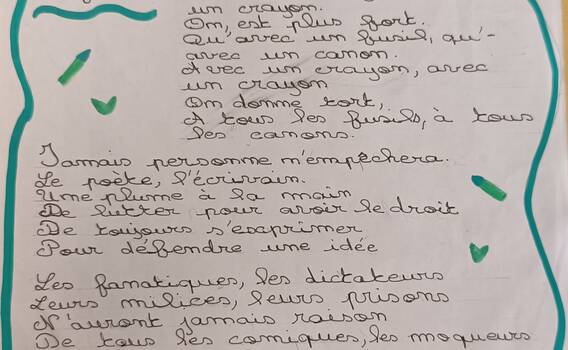 un crayon.
On, est plus fort.
Qu'avec un fusil, qu'-
avec un canon.
Avec un crayon, avec
un crayon
On donne tort,
A tous les fusils, à tous
les canons.
Jamais personne n'empêchera.
Le poète, l'écrivain.
Une plume à la main
De lutter pour avoir le droit
De toujours s'exprimer
Pour défendre une idée
Les fanatiques, les dictateurs
Leurs milices, leurs prisons
N'auront jamais raison
De tous les comiques, les moqueurs